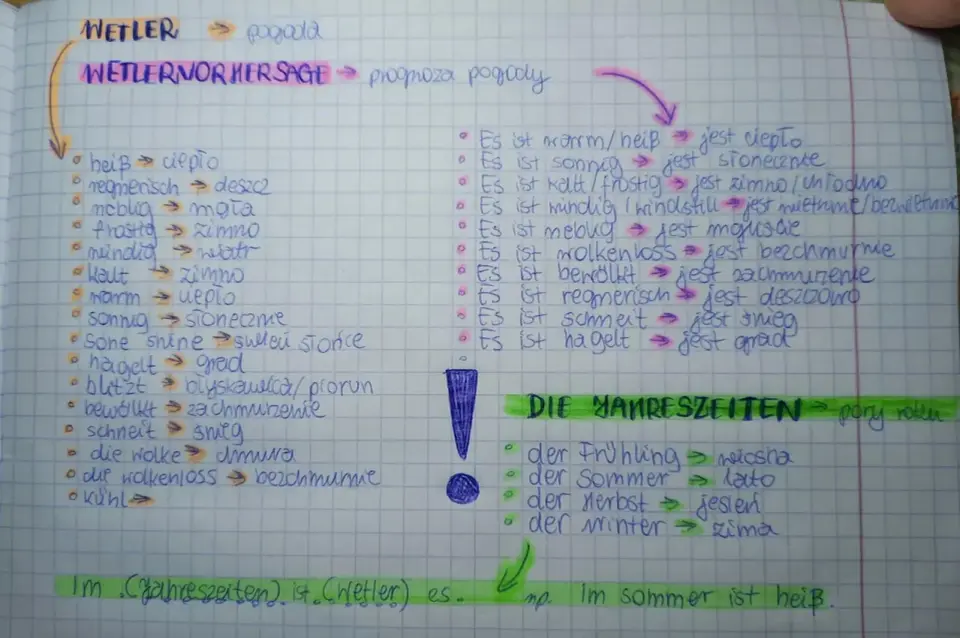 WETLER → pogoda
WETLERVORHERSAGE → prognoza pogody
heiß → ciepło
regnerisch → deszcz
neblig → mgła
frostig → zimno
windig → wiatr
kalt → zimno
warm → ciepło
sonnig → słonecznie
sone shine → słońce
hagelt → grad
blitzt → błyskawica/piorun
bewölkt → zachmurzenie
schneit → śnieg
die wolke → chmura
die wolkenloss → bezchmurnie
kühl →
Es ist warm/heiß → jest ciepło
Es ist sonnig → jest słonecznie
Es ist kalt/frostig → jest zimno/chłodno
Es ist windig/windstill → jest wietrznie/bezwietrznie
Es ist neblig → jest mgliście
Es ist wolkenloss → jest bezchmurnie
Es ist bewölkt → jest zachmurzenie
Es ist regnerisch → jest deszczowo
Es ist schneit → jest śnieg
Es ist hagelt → jest grad
!
DIE YAHRESZEITEN → pory roku
der Frühling → wiosna
der Sommer → lato
der Herbst → jesień
der Winter → zima
Im .(Yahreszeiten) ist (Wetler) es. np. Im sommer ist heiß.